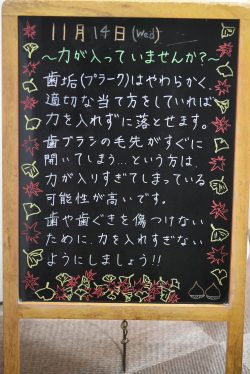 11月14日(Wed)
～力が入っていませんか?～
歯垢(プラーク)はやわらかく、
適切な当て方をしていれば
力を入れずに落とせます。
歯ブラシの毛先がすぐに
開いてしまう…という方は、
力が入りすぎてしまっている
可能性が高いです。
歯や歯ぐきを傷つけない
ために、力を入れすぎない
ようにしましょう!!